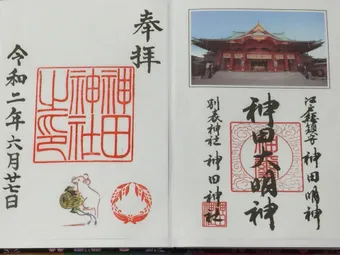 奉拝
神田
神社
之印
令和二年六月廿七日
江戸総鎮守 神田明神
神田大明神
別表神社 神田神社